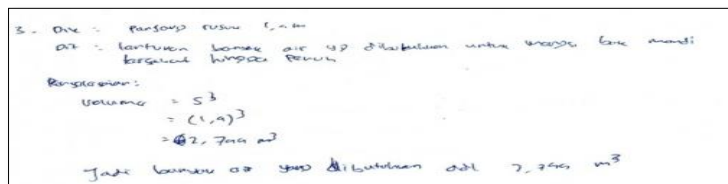 3. Dik : panjang rusuk 1,4 m
Dit : tentukan banyak air yg dibutuhkan untuk mengisi bak mandi
tersebut hingga penuh
Penyelesaian :
Volume = S³
= (1,4)³
= 2,744 m³
Jadi banyak air yang dibutuhkan adl 2,744 m³